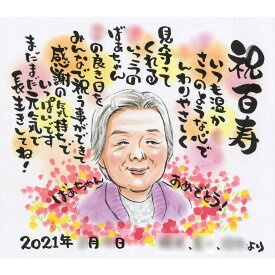 祝百寿
いつも温か
さつのような心で
んわりやさしく
見守って
くれる
いつうの
ばあちゃん
の良き日を
みんなで祝う事ができて
感謝の気持で
いっぱいです
まだまだ元気で
長生きしてね!
ばあちゃん
おめでとう!
2021年 月 日
より